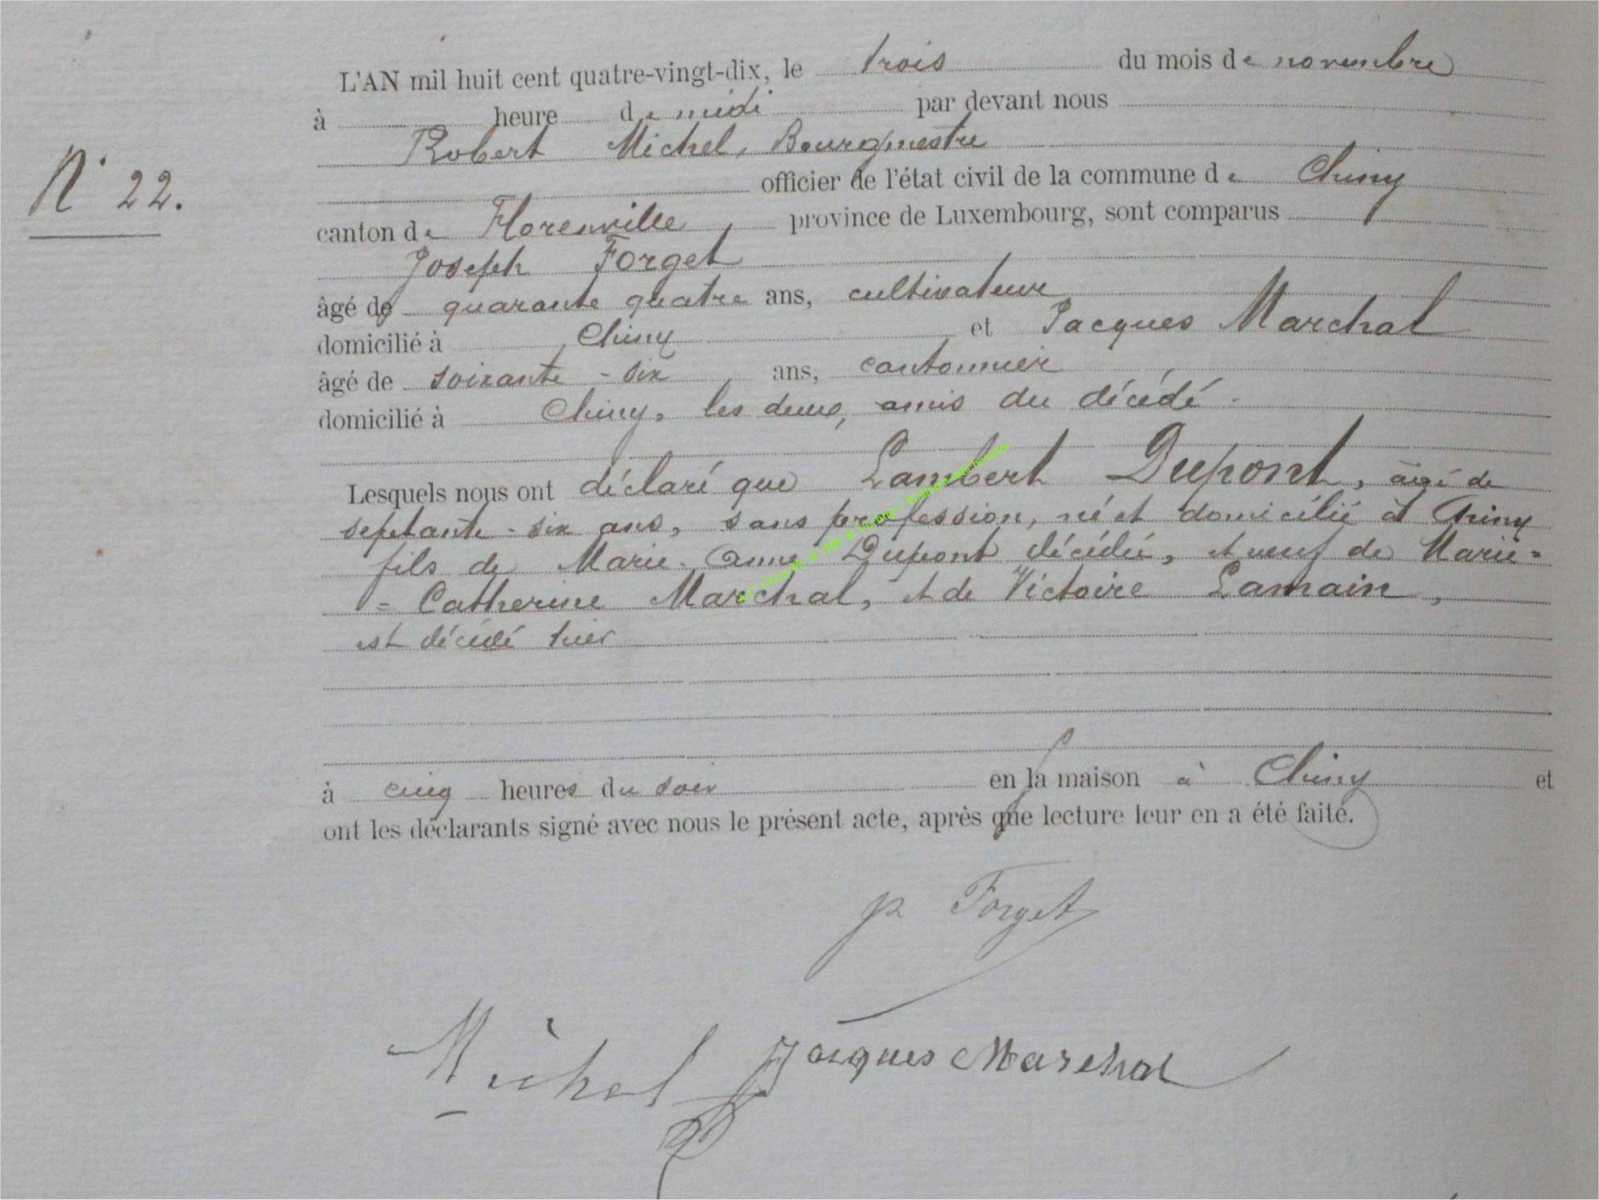 L'AN mil huit cent quatre-vingt-dix, le trois du mois de novembre
à heure de midi par devant nous
N° 22.
Robert Michel, Bourgmestre
officier de l'état civil de la commune de Chiny
canton de Florenville province de Luxembourg, sont comparus
Joseph Forget
âgé de quarante quatre ans, cultivateur
domicilié à Chiny et Jacques Marchal
âgé de soixante-six ans, cantonnier
domicilié à Chiny, les deux, amis du décédé.
Lesquels nous ont déclaré que Lambert Dupont, âgé de
septante-six ans, sans profession, né et domicilié à Chiny
fils de Marie-Anne Dupont décédée, et veuf de Marie=
=Catherine Marchal, et de Victoire Lamain,
est décédé hier
à cinq heures du soir en la maison à Chiny et
ont les déclarants signé avec nous le présent acte, après que lecture leur en a été faite.
Forget
Michel Jacques Marchal